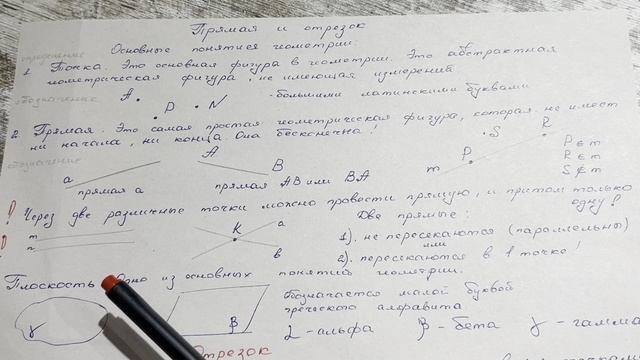 Прямая и отрезок
Основные понятися геометрии:
определение
1. Точка. Это основная фигура в геометрии. Это абстрактная
геометрическая фигура, не имеющая измерений
обозначение A D N - большими латинскими буквами
2. Прямая. Это самая простая геометрическая фигура, которая не имеет
ни начала, ни конца. Она бесконечна!
обозначение
a
прямая a
A B
прямая AB или BA
m P S R
P ∈ m
R ∈ m
S ∉ m
! Через две различные точки можно провести прямую, и притом только
одну!
Две прямые:
m
n
K a
в
1). не пересекаются (параллельны)
или
2). пересекаются в 1 точке!
Плоскость одно из основных понятий геометрии.
γ
β
Обозначается малой буквой
греческого алфавита
α - альфа β - бета γ - гамма
Отрезок